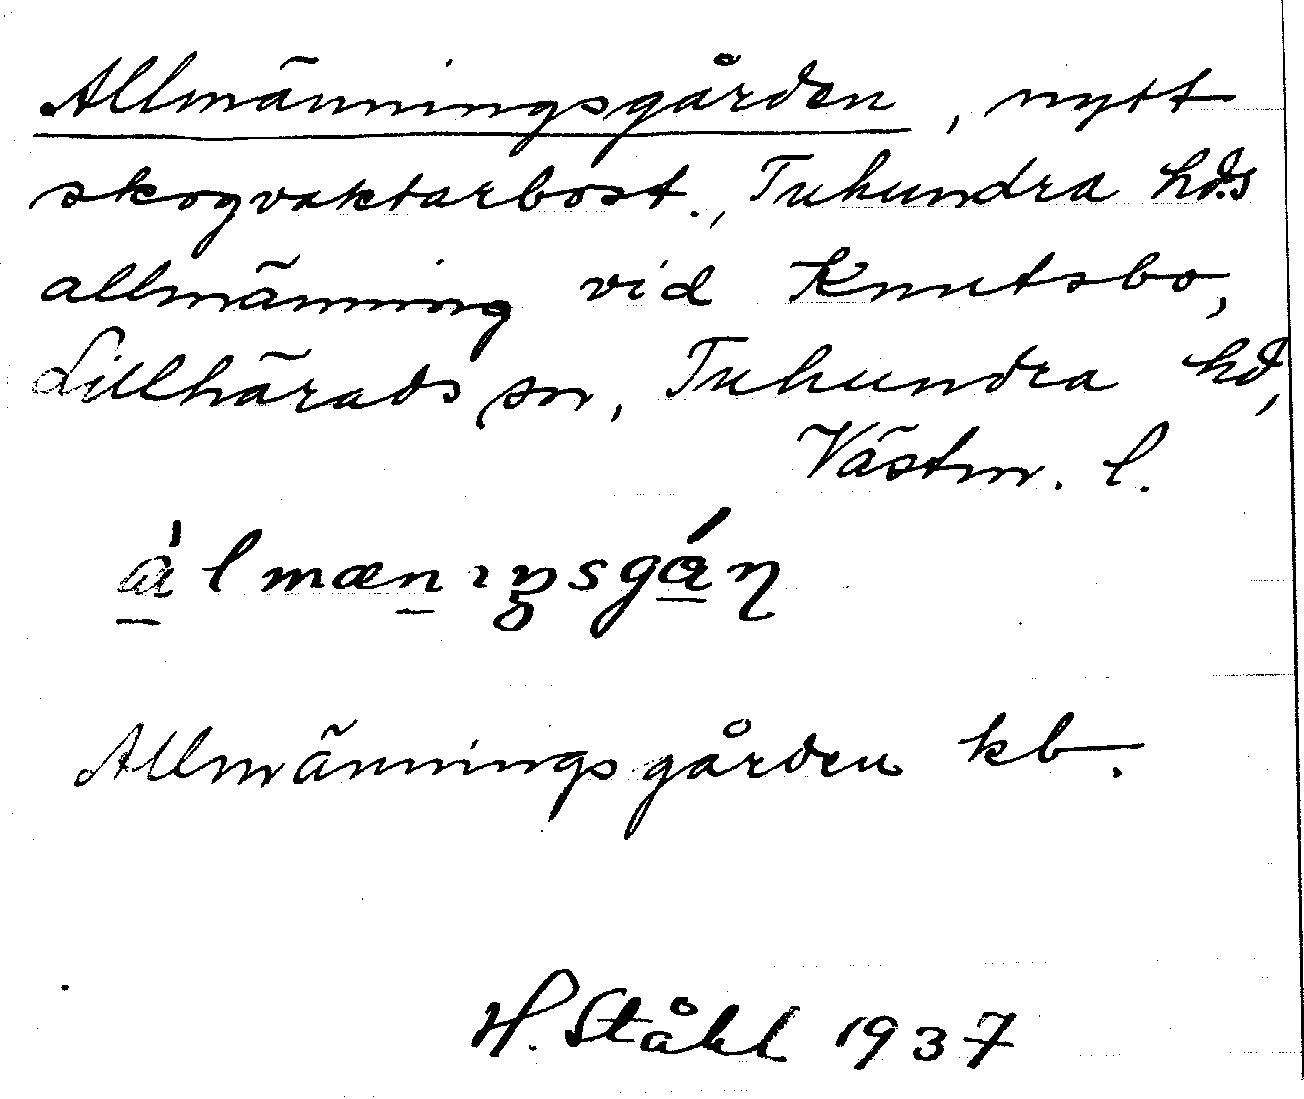 Allmänningsgården, nytt
skogvaktarbost., Tuhundra hds
allmänning vid Knutsbo,
Lillhärads sn, Tuhundra hd,
Västm. l.
álmænıŋsgán
Allmänningsgården kb.
H. Ståhl 1937